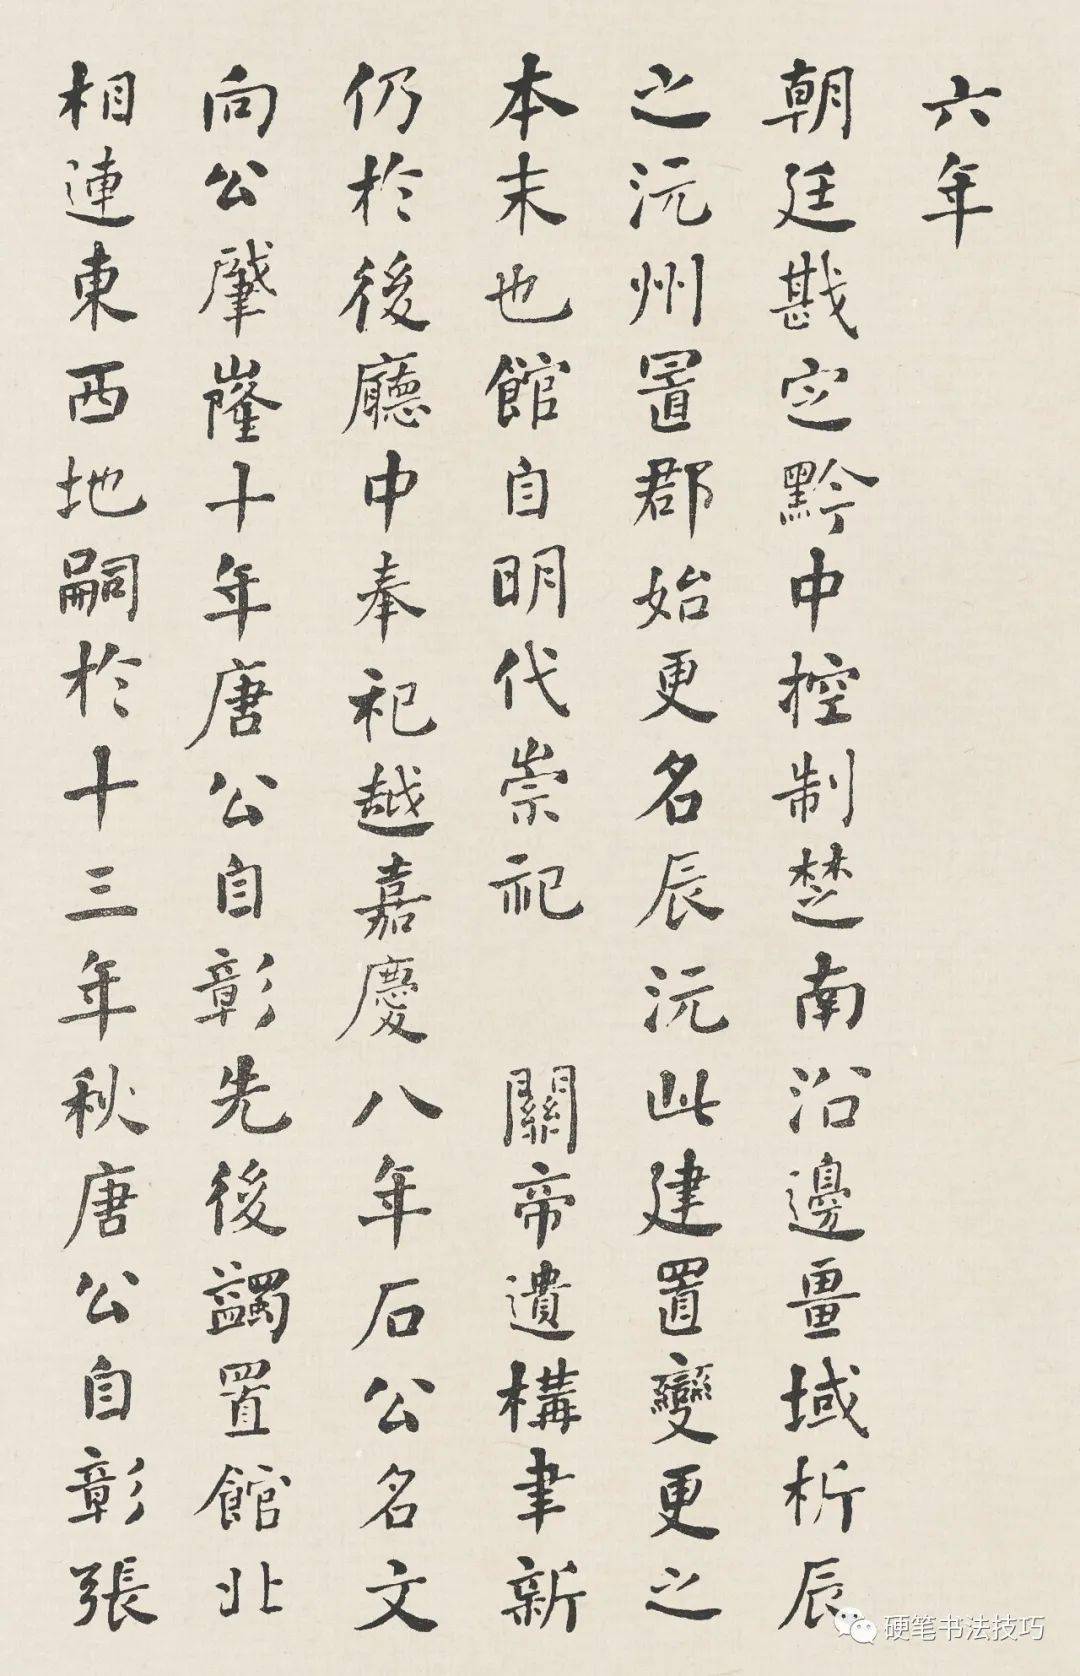 六年
朝廷戡定黔中控制楚南沿邊畺域析辰
之沅州置郡始更名辰沅此建置變更之
本末也館自明代崇祀 關帝遺構聿新
仍於後廳中奉祀越嘉慶八年石公名文
向公肇隆十年唐公自彰先後蠲置館北
相連東西地嗣於十三年秋唐公自彰張
硬笔书法技巧